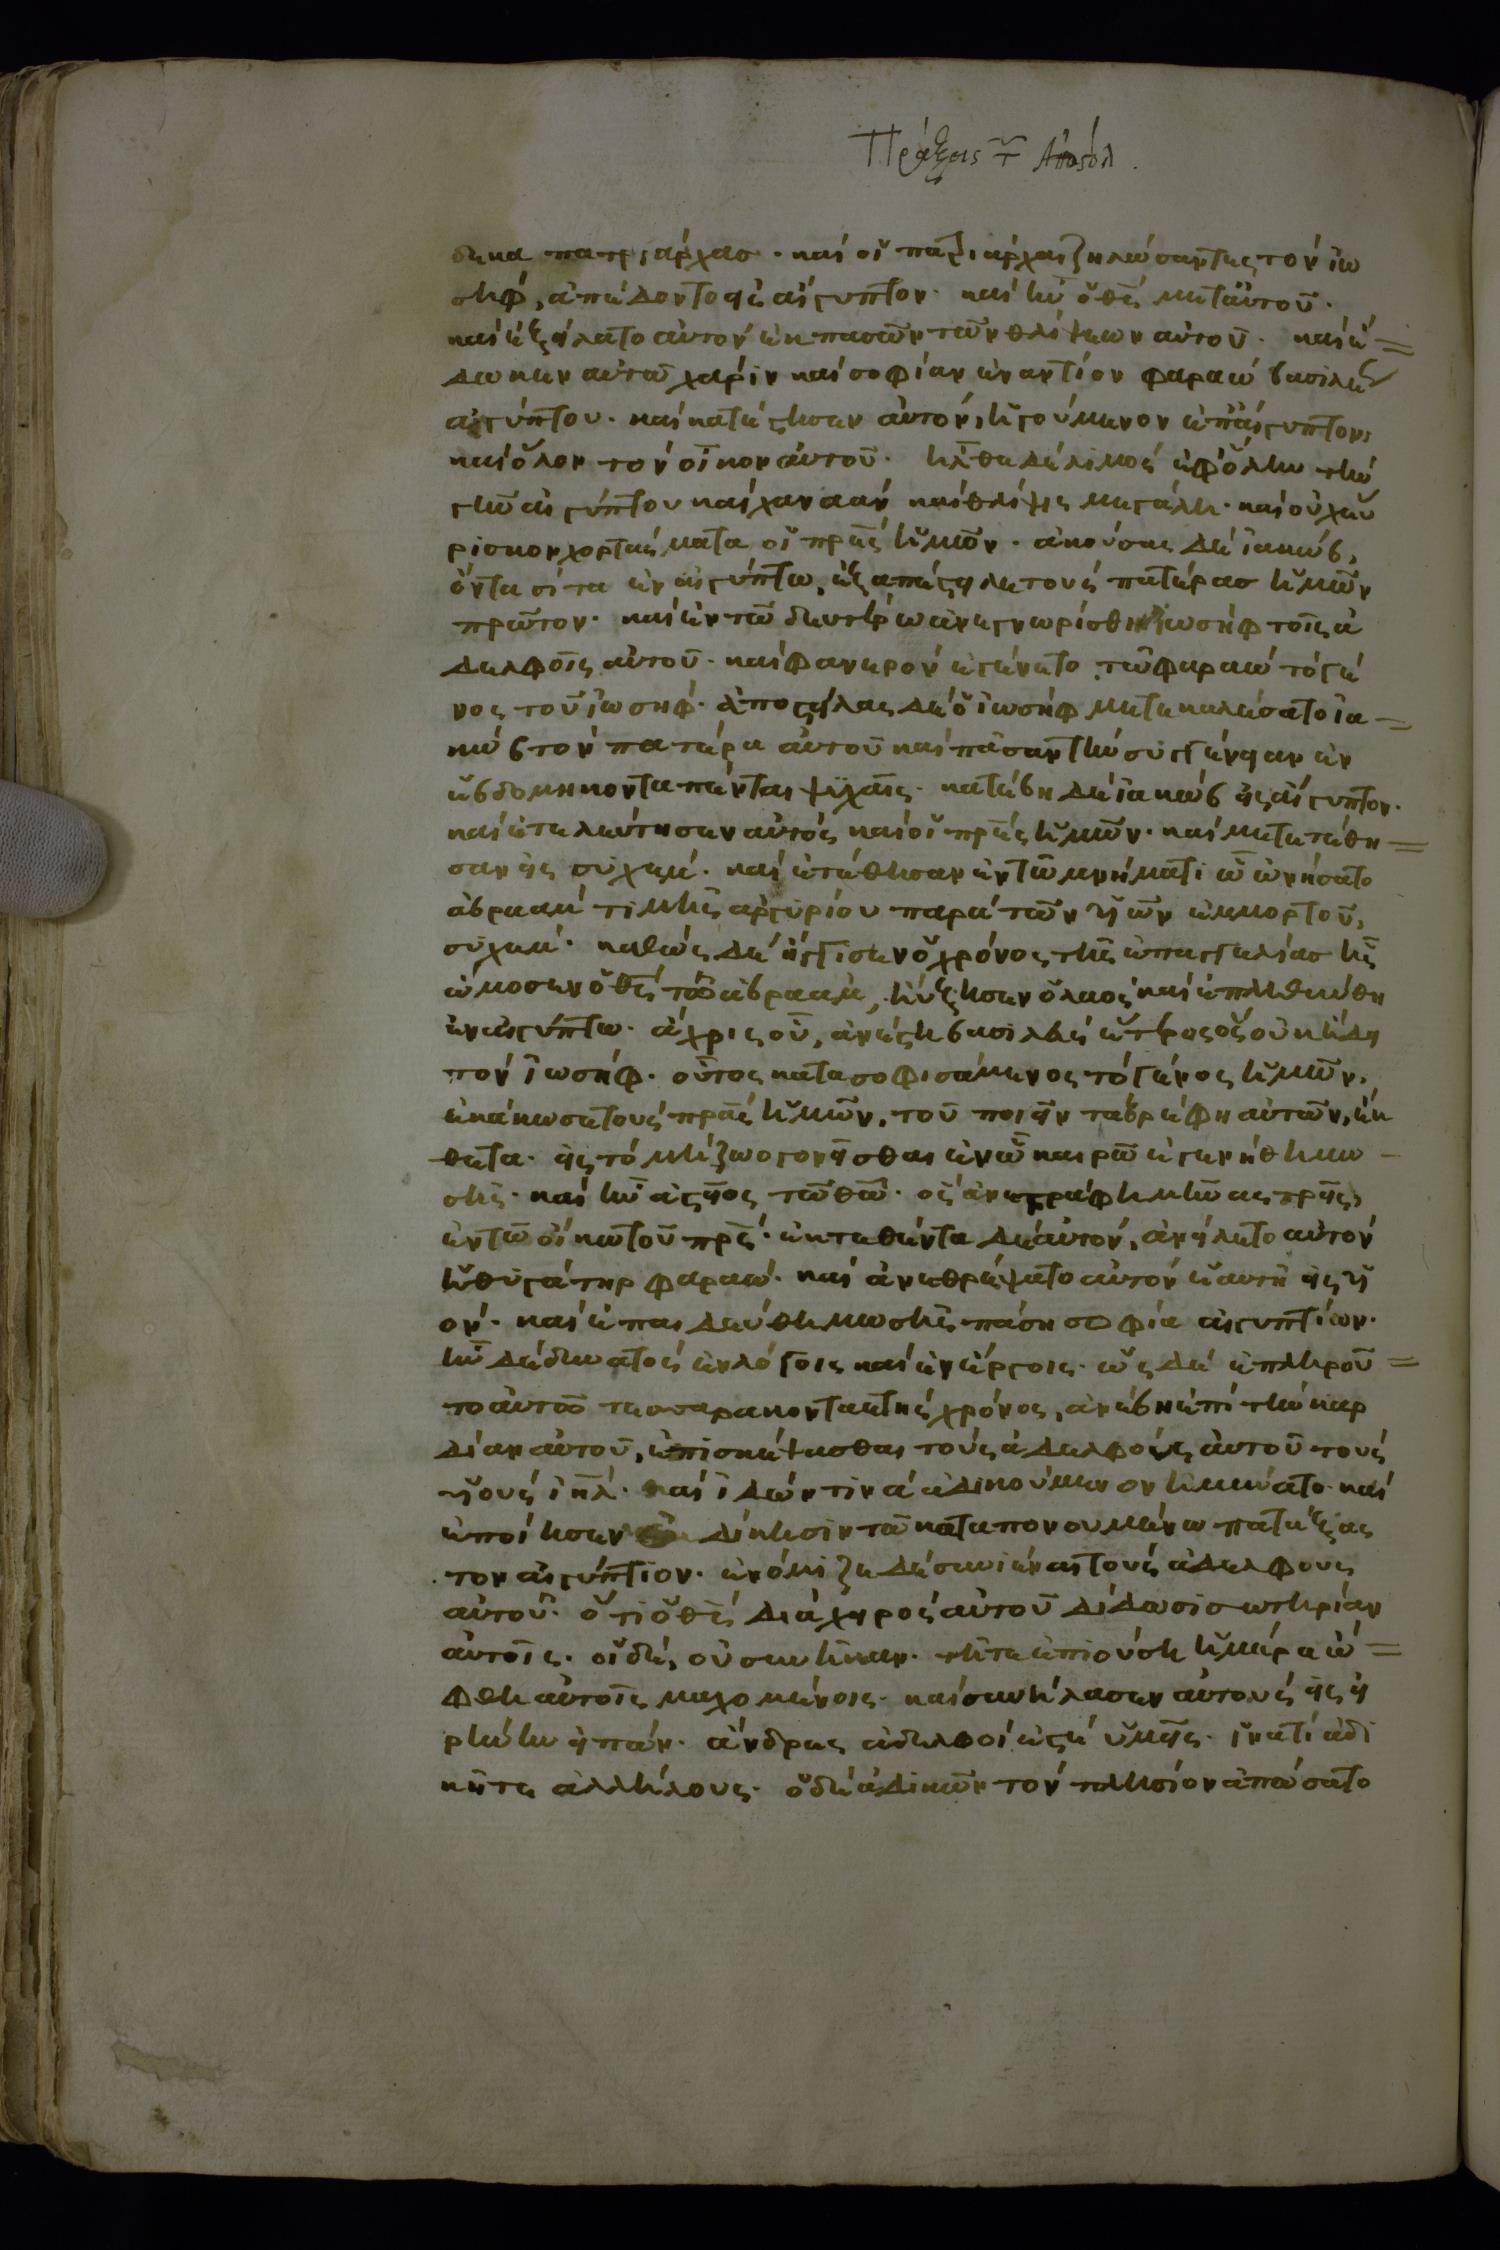 Πράξεις τ Ἀποστόλ.
δεκα πατριάρχασ · καὶ οἱ πατριάρχαι ζηλώσαντες τὸν ἰω
σὴφ, ἀπέδοντο εἰς αἴγυπτον · καὶ ἦν ὁ θς μετ' αὐτοῦ ·
καὶ ἐξείλατο αὐτὸν ἐκ πασῶν τῶν θλίψεων αὐτοῦ · καὶ ἔ=
δωκεν αὐτῶ χάριν καὶ σοφίαν ἐναντίον φαραὼ βασιλέως
αἰγύπτου · καὶ κατέστησεν αὐτὸν, ἡγούμενον ἐπ' αἴγυπτον,
καὶ ὅλον τὸν οἶκον αὐτοῦ · ἦλθε δὲ λιμὸς ἐφ' ὅλην τὴν
γῆν αἰγύπτου καὶ χαναάν καὶ θλίψις μεγάλη · καὶ οὐχ εὕ
ρισκον χορτάσματα οἱ πρες ἡμῶν · ἀκούσας δὲ ἰακώβ,
ὄντα σίτα ἐν αἰγύπτω, ἐξαπέστειλε τοὺς πατέρασ ἡμῶν
πρῶτον · καὶ ἐν τῶ δευτέρω ἀνεγνωρίσθη ἰωσὴφ τοῖς ἀ
δελφοῖς αὐτοῦ · καὶ φανερὸν ἐγένετο τῶ φαραὼ τὸ γέ
νος τοῦ ἰωσήφ · ἀποστείλας δὲ ὁ ἰωσὴφ μετεκαλέσατο ἰα=
κὼβ τὸν πατέρα αὐτοῦ καὶ πᾶσαν τὴν συγγένειαν ἐν
ἑβδομηκονταπέντε ψυχαῖς · κατέβη δὲ ἰακὼβ εἰς αἴγυπτον ·
καὶ ἐτελεύτησεν αὐτὸς καὶ οἱ πρες ἡμῶν · καὶ μετετέθη=
σαν εἰς συχέμ · καὶ ἐτέθησαν ἐν τῶ μνήματι ᾧ ὠνήσατο
ἀβραὰμ τιμῆς ἀργυρίου παρὰ τῶν υἱῶν ἐμμὸρ τοῦ,
συχέμ · καθὼς δὲ ἤγγισεν ὁ χρόνος τῆς ἐπαγγελίασ ἧς
ὤμοσεν ὁ θς τῶ ἀβραὰμ, ηὔξησεν ὁ λαὸς καὶ ἐπληθύνθη
ἐν αἰγύπτω · ἄχρις οὗ, ἀνέστη βασιλεὺς ἕτερος ὃς οὐκ ᾔδει
τὸν ἰωσήφ · οὗτος κατασοφισάμενος τὸ γένος ἡμῶν,
ἐκάκωσε τοὺς πρας ἡμῶν, τοῦ ποιεῖν τὰ βρέφη αὐτῶν, ἔκ
θετα · εἰς τὸ μὴ ζωογονεῖσθαι ἐν ᾧ καιρῶ ἐγεννήθη μω-
σῆς · καὶ ἦν ἀστεῖος τῶ θῶ · ὃς ἀνετράφη μῆνας τρεῖς,
ἐν τῶ οἴκω τοῦ πρς · ἐκτεθέντα δὲ αὐτὸν, ἀνείλετο αὐτὸν
ἡ θυγάτηρ φαραώ · καὶ ἀνεθρέψατο αὐτὸν ἑαυτῆ εἰς υἱ
όν · καὶ ἐπαιδεύθη μωσῆς πάση σοφία αἰγυπτίων ·
ἦν δὲ δυνατὸς ἐν λόγοις καὶ ἐν ἔργοις · ὡς δὲ ἐπληροῦ=
το αὐτῶ τεσσαρακονταετὴς χρόνος, ἀνέβη ἐπὶ τὴν καρ
δίαν αὐτοῦ, ἐπισκέψασθαι τοὺς ἀδελφοὺς αὐτοῦ τοὺς
υἱοὺς ιηλ · καὶ ἰδών τινα ἀδικούμενον ἠμύνατο · καὶ
ἐποίησεν ἐκδίκησιν τῶ καταπονουμένω πατάξας
τὸν αἰγύπτιον · ἐνόμιζε δὲ συνιέναι τοὺς ἀδελφους
αὐτοῦ · ὅτι ὁ θς διὰ χειρὸς αὐτοῦ δίδωσι σωτηρίαν
αὐτοῖς · οἱ δὲ, οὐ συνῆκαν · τῆ τε ἐπιούση ἡμέρα ὤ=
φθη αὐτοῖς μαχομένοις · καὶ συνήλασεν αὐτοὺς εἰς εἰ
ρήνην εἰπών · ἄνδρες ἀδελφοί ἐστε ὑμεῖς · ἱνατί ἀδι
κεῖτε ἀλλήλους · ὁ δὲ ἀδικῶν τὸν πλησίον ἀπώσατο